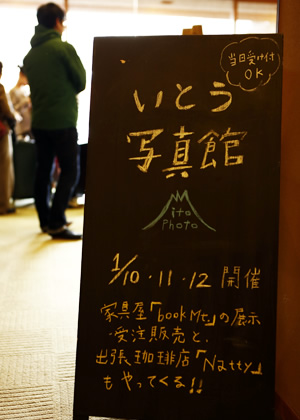 当日受け付
OK
いとう
写真館
ito
Photo
1/10・11・12 開催
家具屋「bookMt.」の展示
・受注販売と、
出張珈琲店「Natty」
もやってくる!!